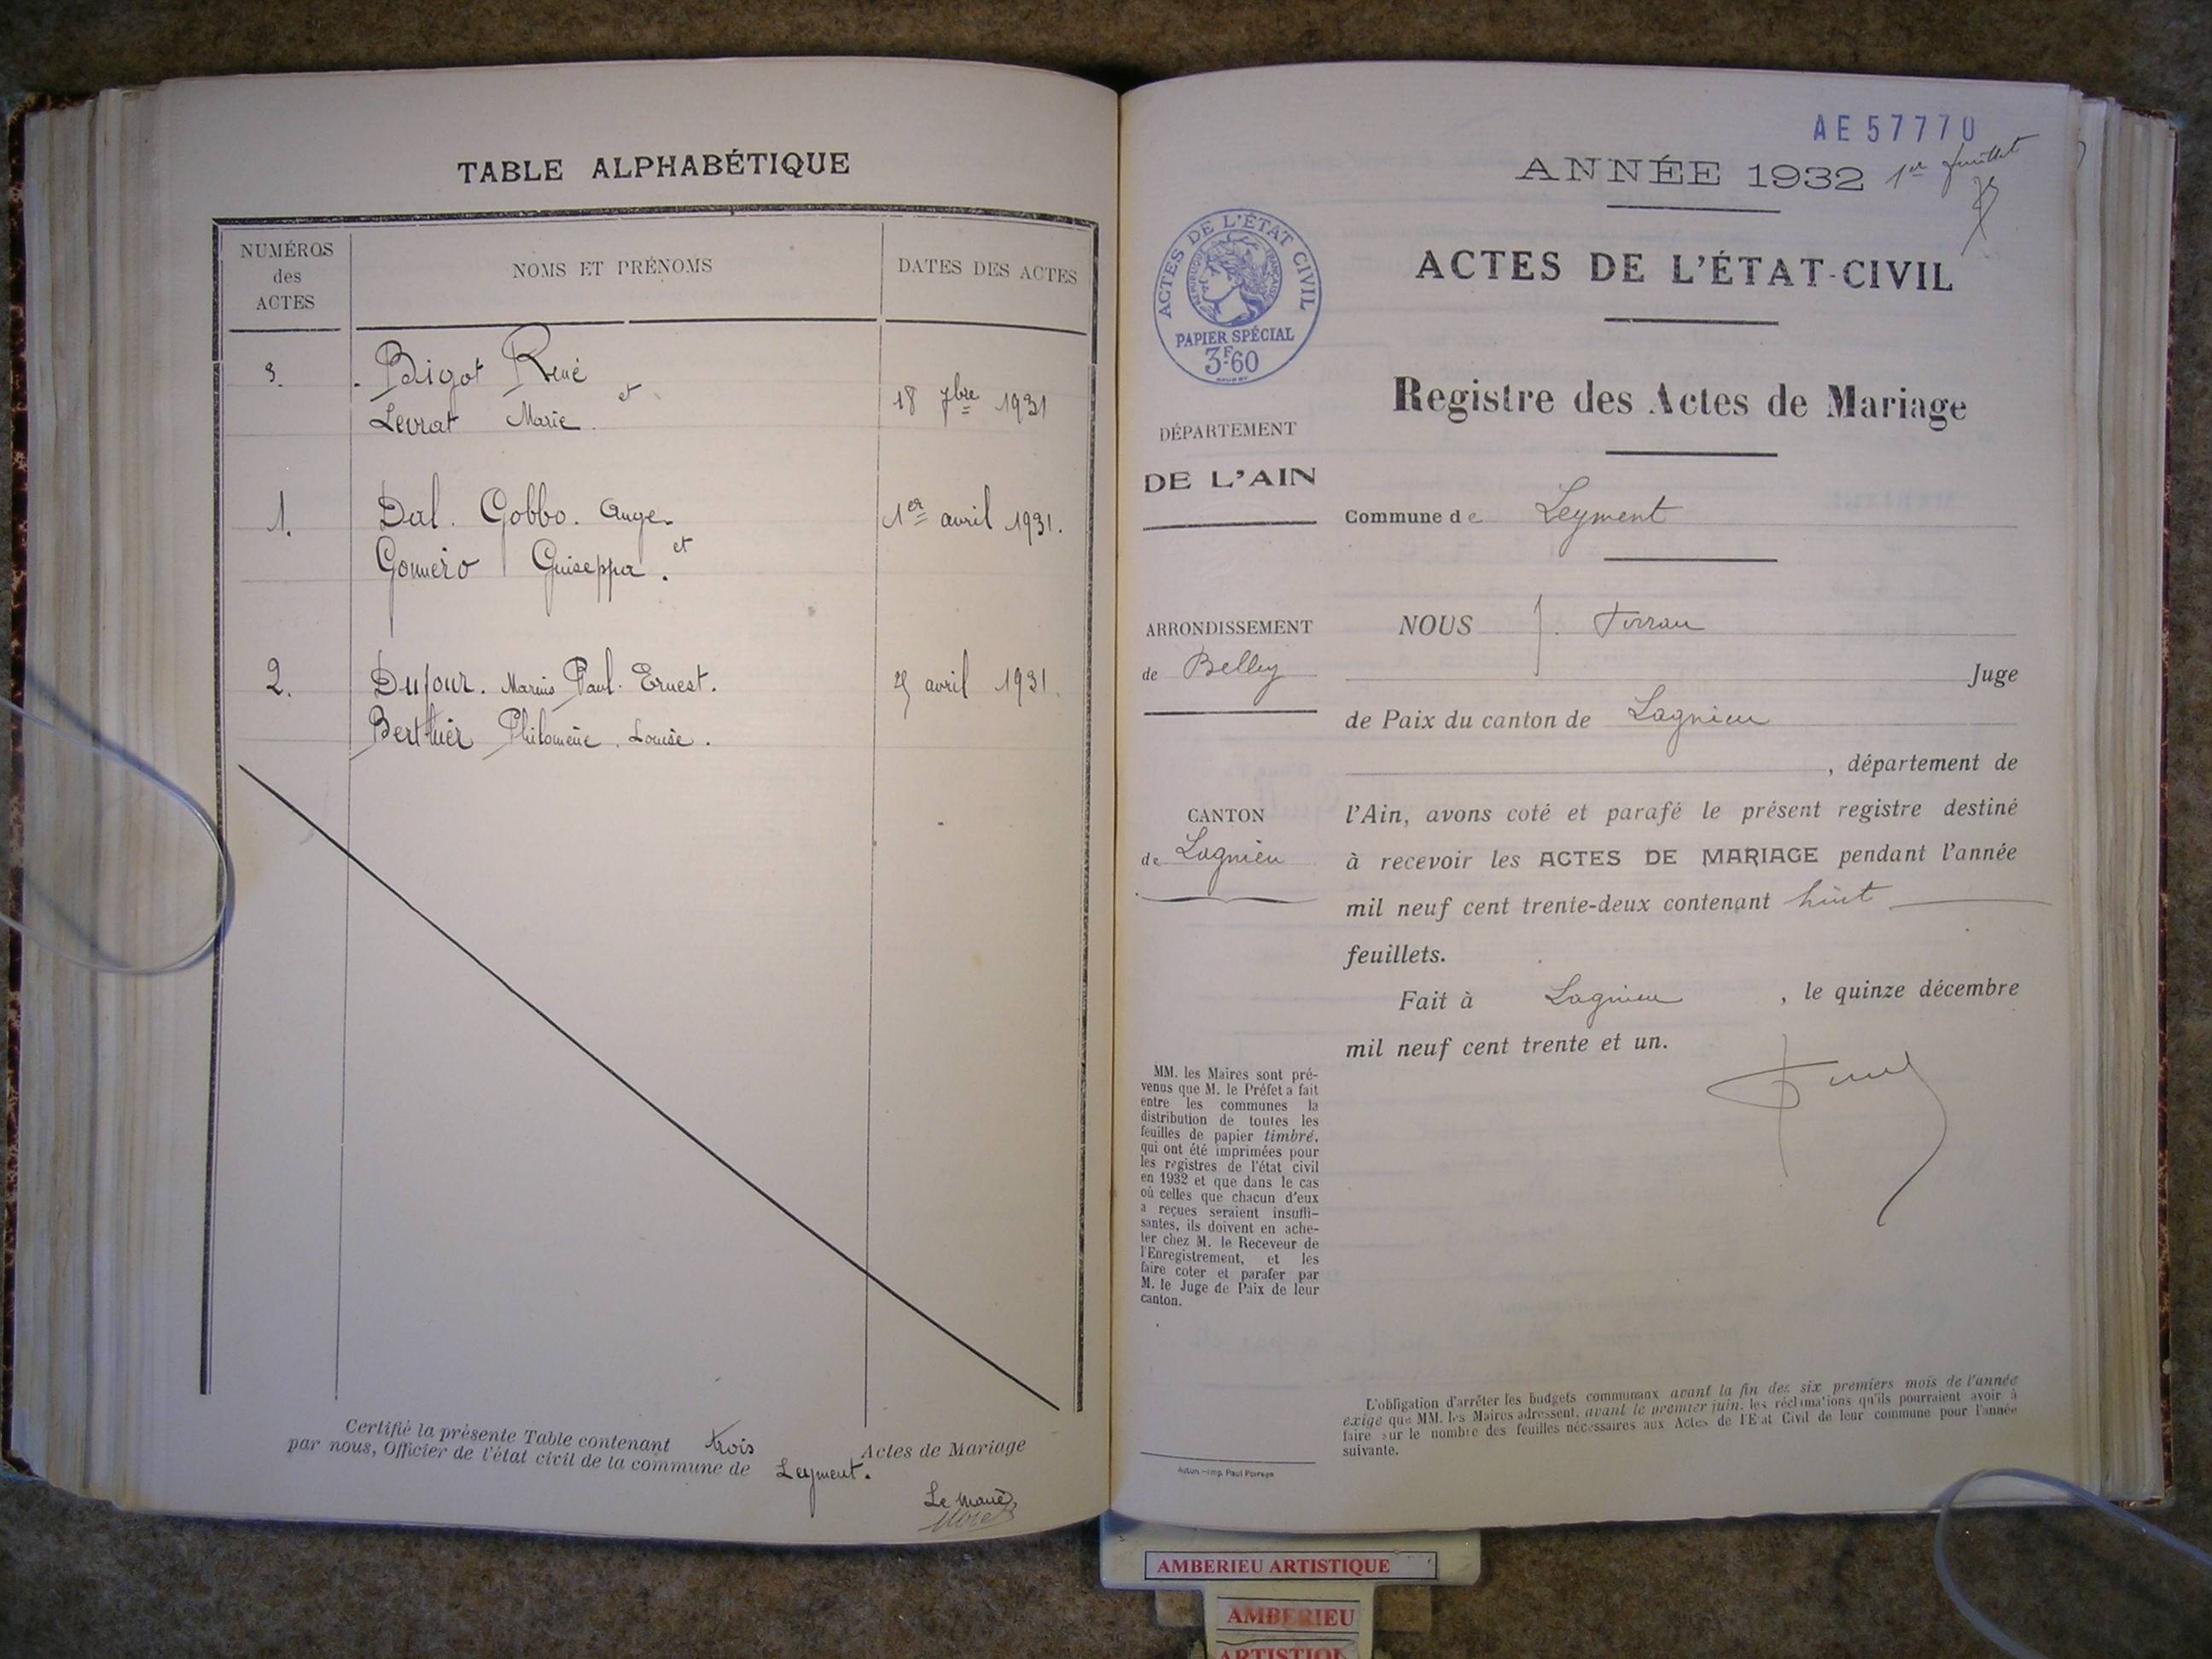 TABLE ALPHABÉTIQUE
NUMÉROS
des
ACTES
NOMS ET PRÉNOMS
DATES DES ACTES
3. Bigot René et
Levrat Marie. 18 7bre 1931
1. Dal. Gobbo. Ange. et 1er avril 1931.
Gonnéro Guiseppa.
2. Dufour. Marius Paul. Ernest. avril 1931.
Berthier Philomène. Louise.
Certifié la présente Table contenant trois Actes de Mariage
par nous, Officier de l'état civil de la commune de Leyment.
Le maire
AE 57770
ANNÉE 1932 1er feuillet
ACTES DE L'ÉTAT CIVIL
RÉPUBLIQUE FRANÇAISE
PAPIER SPÉCIAL
3F60
ACTES DE L'ÉTAT-CIVIL
Registre des Actes de Mariage
DÉPARTEMENT
DE L'AIN
Commune de Leyment
ARRONDISSEMENT
de Belley
CANTON
de Lagnieu
NOUS J.
Juge
de Paix du canton de Lagnieu
, département de
l'Ain, avons coté et parafé le présent registre destiné
à recevoir les ACTES DE MARIAGE pendant l'année
mil neuf cent trente-deux contenant huit
feuillets.
Fait à Lagnieu, le quinze décembre
mil neuf cent trente et un.
MM. les Maires sont pré-
venus que M. le Préfet a fait
entre les communes la
distribution de toutes les
feuilles de papier timbré,
qui ont été imprimées pour
les registres de l'état civil
en 1932 et que dans le cas
où celles que chacun d'eux
a reçues seraient insuffi-
santes, ils doivent en ache-
ter chez M. le Receveur de
l'Enregistrement, et les
faire coter et parafer par
M. le Juge de Paix de leur
canton.
L'obligation d'arrêter les budgets communaux avant la fin des six premiers mois de l'année
exige que MM. les Maires adressent, avant le premier juin, les réclamations qu'ils pourraient avoir à
faire sur le nombre des feuilles nécessaires aux Actes de l'Etat Civil de leur commune pour l'année
suivante.
Autun.-Imp. Paul
AMBERIEU ARTISTIQUE
AMBERIEU
ARTISTIQUE